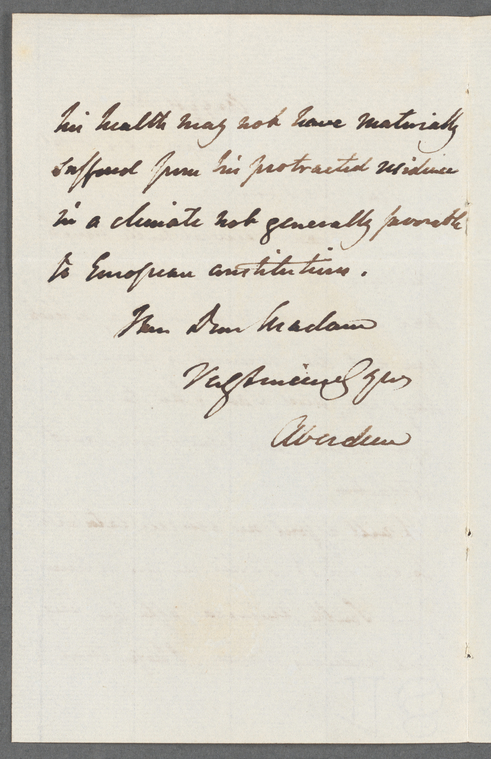 his health may not have materially
suffered from his protracted residence
in a climate not generally favorable
to European constitutions.
Dear Madam
Very sincerely yrs
Aberdeen